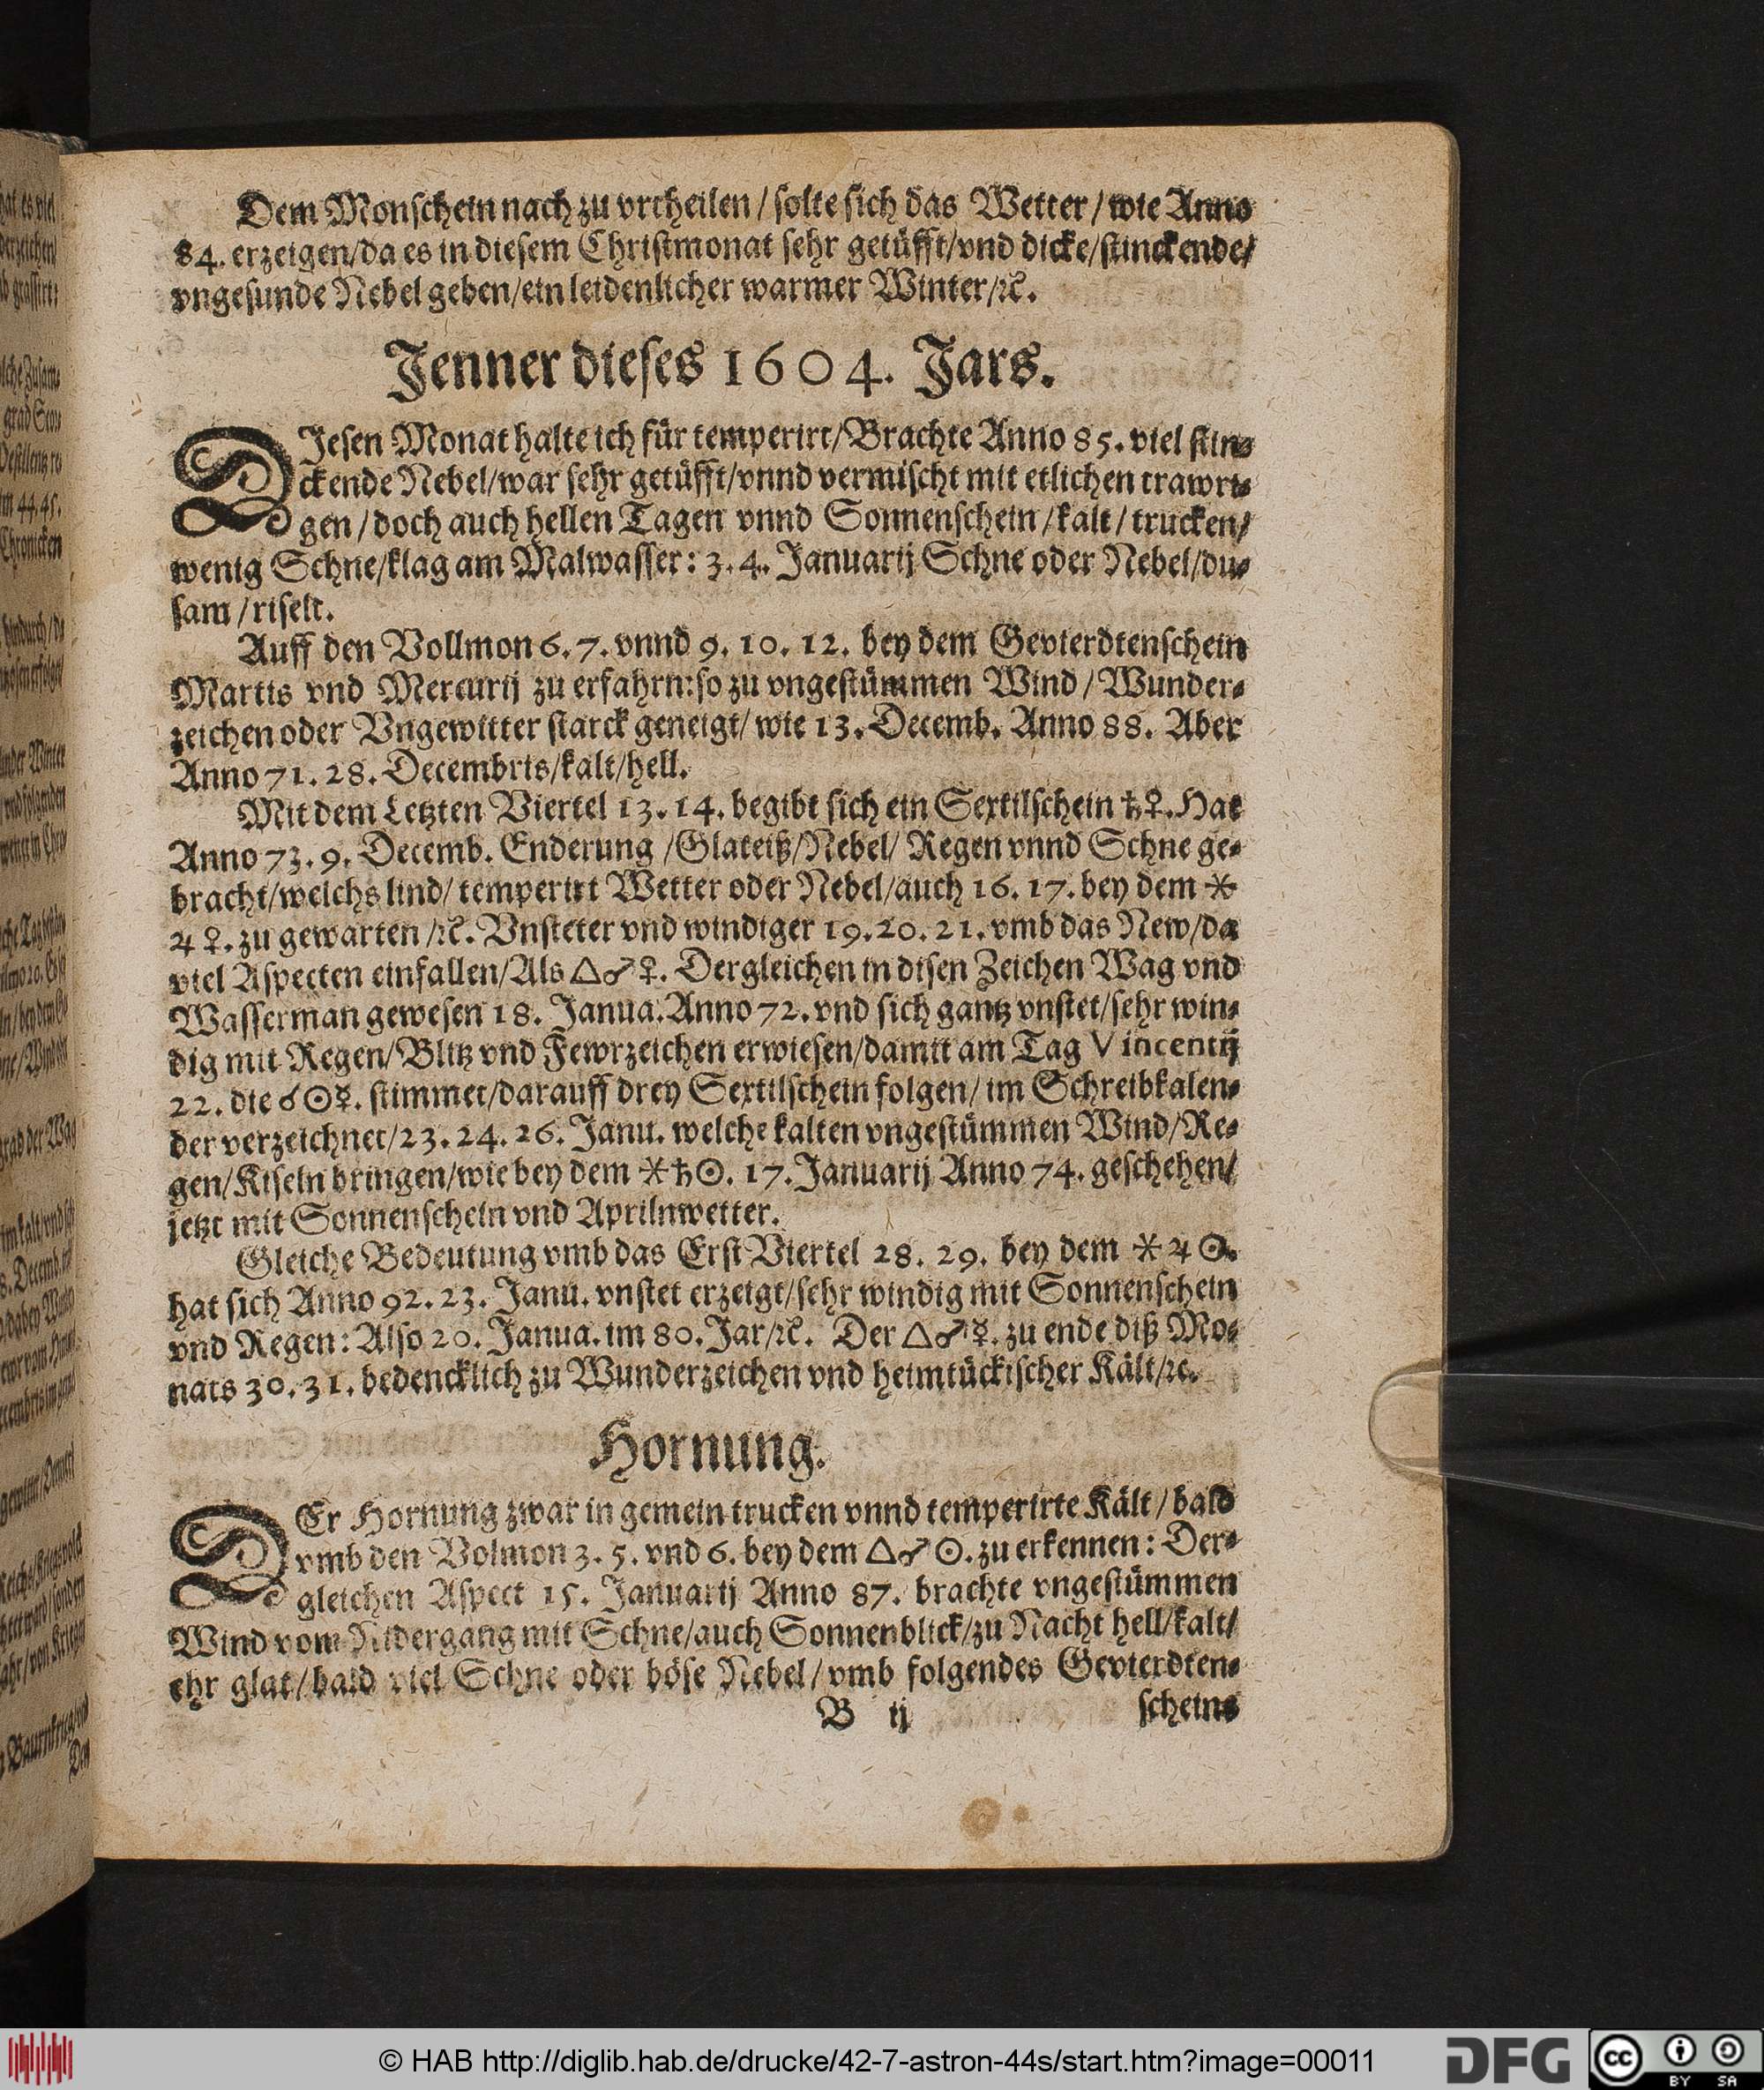 Dem Monschein nach zu vrtheilen / solte sich das Wetter / wie Anno
84. erzeigen/da es in diesem Christmonat sehr getüfft/vnd dicke/stinckende/
vngesunde Nebel geben/ein leidenlicher warmer Winter/ꝛc.
Jenner dieses 1604. Jars.
DJesen Monat halte ich für temperirt/Brachte Anno 85. viel stin⸗
ckende Nebel/war sehr getüfft/vnnd vermischt mit etlichen trawri⸗
gen / doch auch hellen Tagen vnnd Sonnenschein / kalt / trucken/
wenig Schne/klag am Malwasser: 3. 4. Januarij Schne oder Nebel/du⸗
sam / riselt.
Auff den Vollmon 6. 7. vnnd 9. 10. 12. bey dem Gevierdtenschein
Martis vnd Mercurij zu erfahrn: so zu vngestümmen Wind / Wunder⸗
zeichen oder Vngewitter starck geneigt/ wie 13. Decemb. Anno 88. Aber
Anno 71. 28. Decembris/kalt/hell.
Mit dem Letzten Viertel 13. 14. begibt sich ein Sextilschein ♄♀. Hat
Anno 73. 9. Decemb. Enderung /Glateiß/Nebel/ Regen vnnd Schne ge⸗
bracht/welchs lind/ temperirt Wetter oder Nebel/auch 16. 17. bey dem ⚹
♃ ♀. zu gewarten /ꝛc. Vnsteter vnd windiger 19. 20. 21. vmb das New/da
viel Aspecten einfallen/Als △♂♀. Dergleichen in disen Zeichen Wag vnd
Wasserman gewesen 18. Janua. Anno 72. vnd sich gantz vnstet/sehr win⸗
dig mit Regen/Blitz vnd Fewrzeichen erwiesen/damit am Tag Vincentij
22. die ☌☉☿. stimmet/darauff drey Sextilschein folgen/ im Schreibkalen⸗
der verzeichnet/23. 24. 26. Janu. welche kalten vngestümmen Wind/Re⸗
gen/Kiseln bringen/wie bey dem ⚹♄☉. 17. Januarij Anno 74. geschehen/
jetzt mit Sonnenschein vnd Aprilnwetter.
Gleiche Bedeutung vmb das Erst Viertel 28. 29. bey dem ⚹ ♃ ☉.
hat sich Anno 92. 23. Janu. vnstet erzeigt/sehr windig mit Sonnenschein
vnd Regen: Also 20. Janua. im 80. Jar/ꝛc. Der △♂☿. zu ende diß Mo⸗
nats 30. 31. bedencklich zu Wunderzeichen vnd heimtückischer Kält/ꝛc.
Hornung.
DEr Hornung zwar in gemein trucken vnnd temperirte Kält / bald
vmb den Volmon 3. 5. vnd 6. bey dem △♂☉. zu erkennen: Der⸗
gleichen Aspect 15. Januarij Anno 87. brachte vngestümmen
Wind vom Nidergang mit Schne/auch Sonnenblick/zu Nacht hell/kalt/
ehr glat/bald viel Schne oder böse Nebel / vmb folgendes Gevierdten⸗
B ij scheins
© HAB http://diglib.hab.de/drucke/42-7-astron-44s/start.htm?image=00011
DFG
cc BY SA